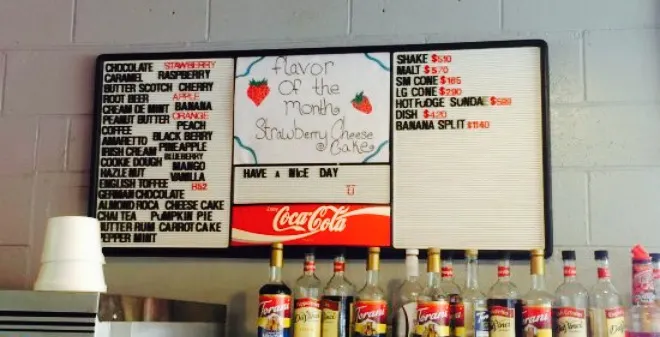 CHOCOLATE STAWBERRY
CARAMEL RASPBERRY
BUTTER SCOTCH CHERRY
ROOT BEER APPLE
CREAM DE MINT BANANA
PEANUT BUTTER ORANGE
COFFEE PEACH
AMARETTO BLACK BERRY
IRISH CREAM PINEAPPLE
COOKIE DOUGH BLUEBERRY
HAZLE NUT MANGO
ENGLISH TOFFEE VANILLA
GERMAN CHOCOLATE
ALMOND ROCA CHEESE CAKE
CHAI TEA PUMPKIN PIE
BUTTER RUM CARROT CAKE
PEPPER MINT
flavor
of the
month
Strawberry Cheese
Cake
HAVE A NICE DAY
Coca-Cola
SHAKE $510
MALT $570
SM CONE $185
LG CONE $290
HOT FUDGE SUNDAE $589
DISH $420
BANANA SPLIT $1140
TORANI
DaVinci
TORANI
TORANI
DaVinci
TORANI
DaVinci
DaVinci